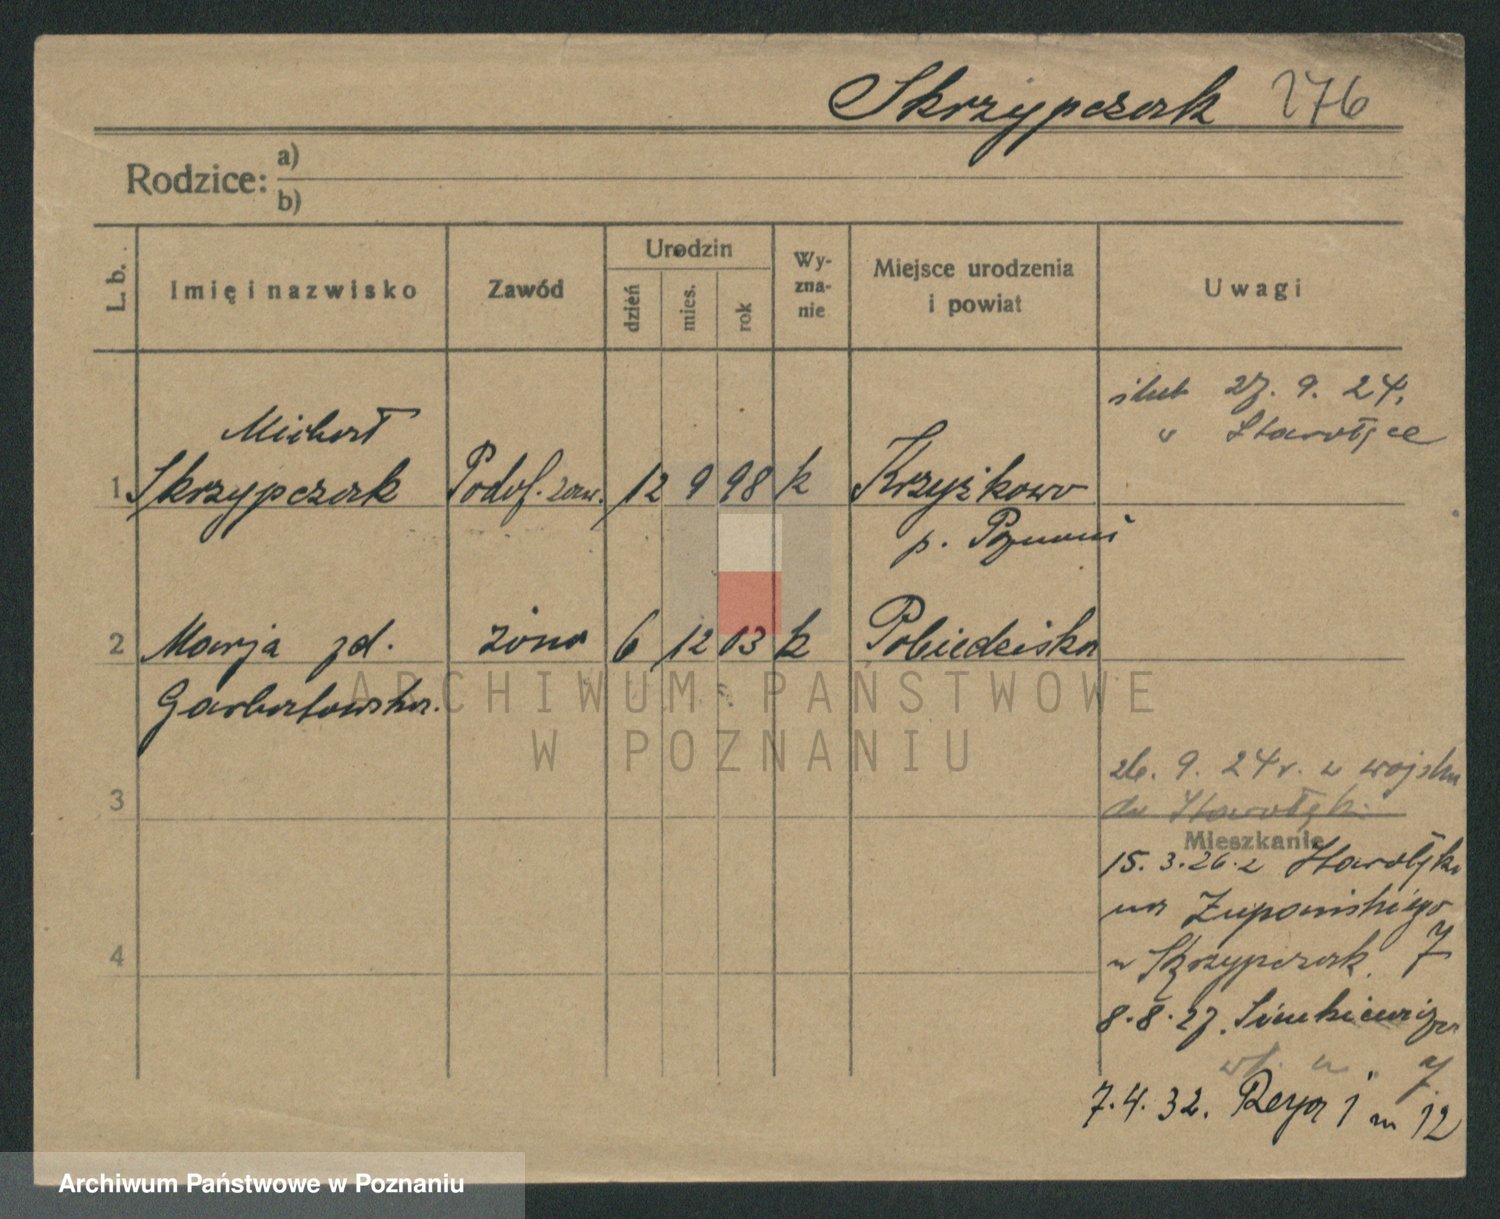 Skrzypczak 276
Rodzice: a)
b)
L. b.
Imię i nazwisko
Zawód
Urodzin
dzień
mies.
rok
Wy-
zna-
nie
Miejsce urodzenia
i powiat
Uwagi
ślub 27. 9. 24.
w Starołęce
Michał
1 Skrzypczak Podof. zaw. 12 9 98 k Krzyżkowo
p. Poznań
2 Marja zd. żona 6 12 03 k Pobiedziska
Garbatowska.
ARCHIWUM PAŃSTWOWE
W POZNANIU
26. 9. 24r. z wojska
3
do Starołęki
Mieszkanie
15.3.26. z Starołęka
na Żupańskiego
4
u Skrzypczak 7
8.8.27. Sienkiewicza
7
7.4.32. Reya 1 m 12
Archiwum Państwowe w Poznaniu